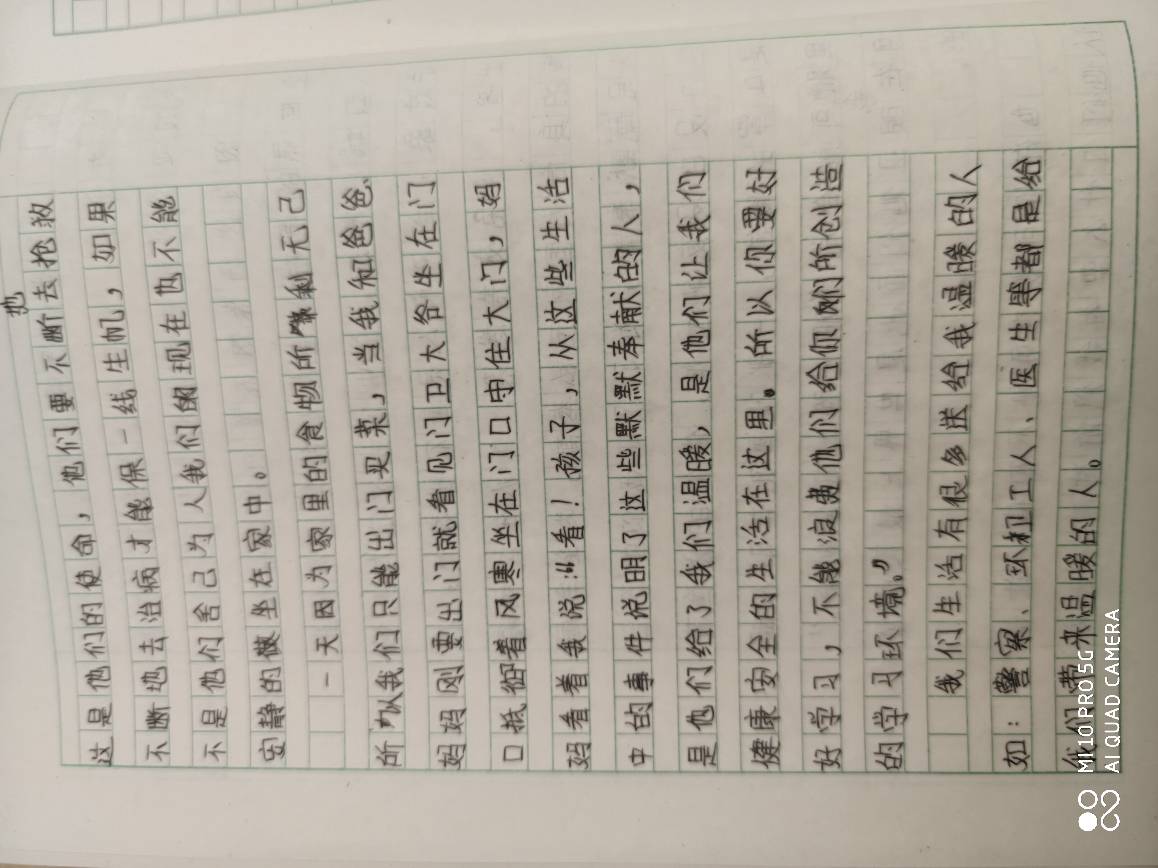 地
这是他们的使命，他们要不断去抢救
不断地去治病才能保一线生机，如果
不是他们舍己为人我们的现在也不能
安静的坐在家中。
一天因为家里的食物所剩无己
所以我们只能出门买菜，当我和爸爸、
妈妈刚要出门就看见门卫大爷坐在门
口抵御着风寒坐在门口守住大门，妈
妈看着我说:“看！孩子，从这些生活
中的事件说明了这些默默奉献的人，
是他们给了我们温暖，是他们让我们
健康安全的生活在这里。所以你要好
好学习，不能浪费他们给你们所创造
的学习环境。”
我们生活有很多送给我温暖的人
如：警察、环卫工人、医生等都是给
我们带来温暖的人。
MI 10 PRO 5G
AI QUAD CAMERA